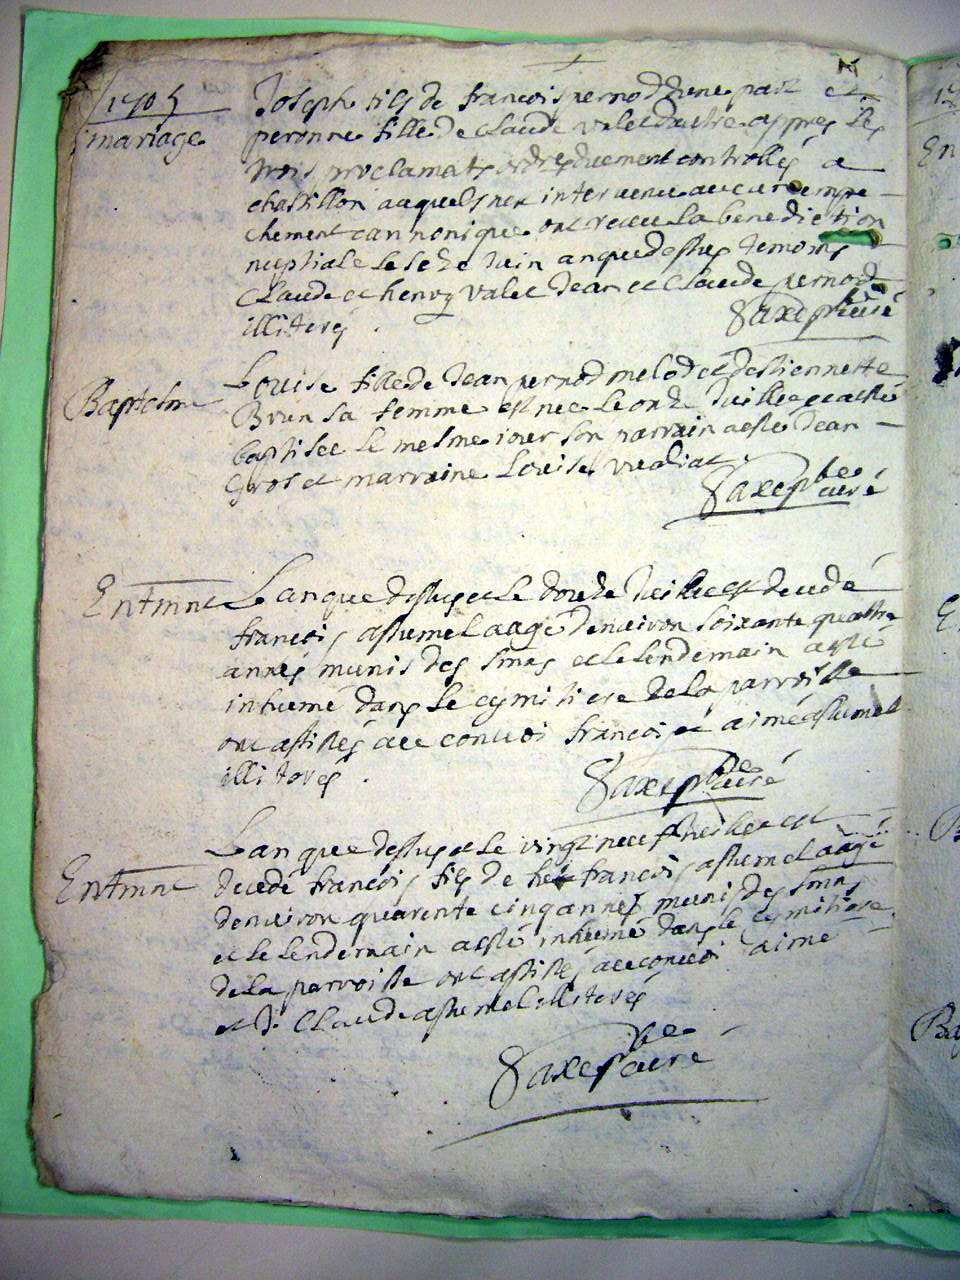 1705
mariage
Joseph fils de francois pernod d'une part et
peronne fille de Claude valet d'autre appres les
trois proclamats deuement controllés a
chastillon auquels n'est intervenu aucun empe-
chement cannonique ont receu la benediction
nuptiale le seze Juin an que dessus temoins
Claude et henry valet Jean et Claude pernod
illiterés .
Saxe pbre curé
Baptesme
Louise fille de Jean pernod melod et d'estiennette
Brun sa femme est nee le onze Juillet et a esté
baptisée le mesme iour son parrain a esté Jean
Gros et marraine Louise vualiat .
Saxe pbre curé
Entmnt
L'an que dessus et le douze Juillet est decedé
francois assumel aagé d'environ soixante quattre
annés munis des Smns et le lendemain a esté
inhumé dans le cymitiere de la parroisse
ont assistés au convoi francois et aimé assumel
illiterés .
Saxe pbre curé
Entmnt
L'an que dessus et le vingt neuf Juillet est
decedé francois fils de francois assumel aagé
d'environ quarente cinq annes munis des Smns
et le lendemain a esté inhumé dans le cymitiere
de la parroisse ont assistés au convoi aimé
et Claude assumel illiterés
Saxe pbre curé